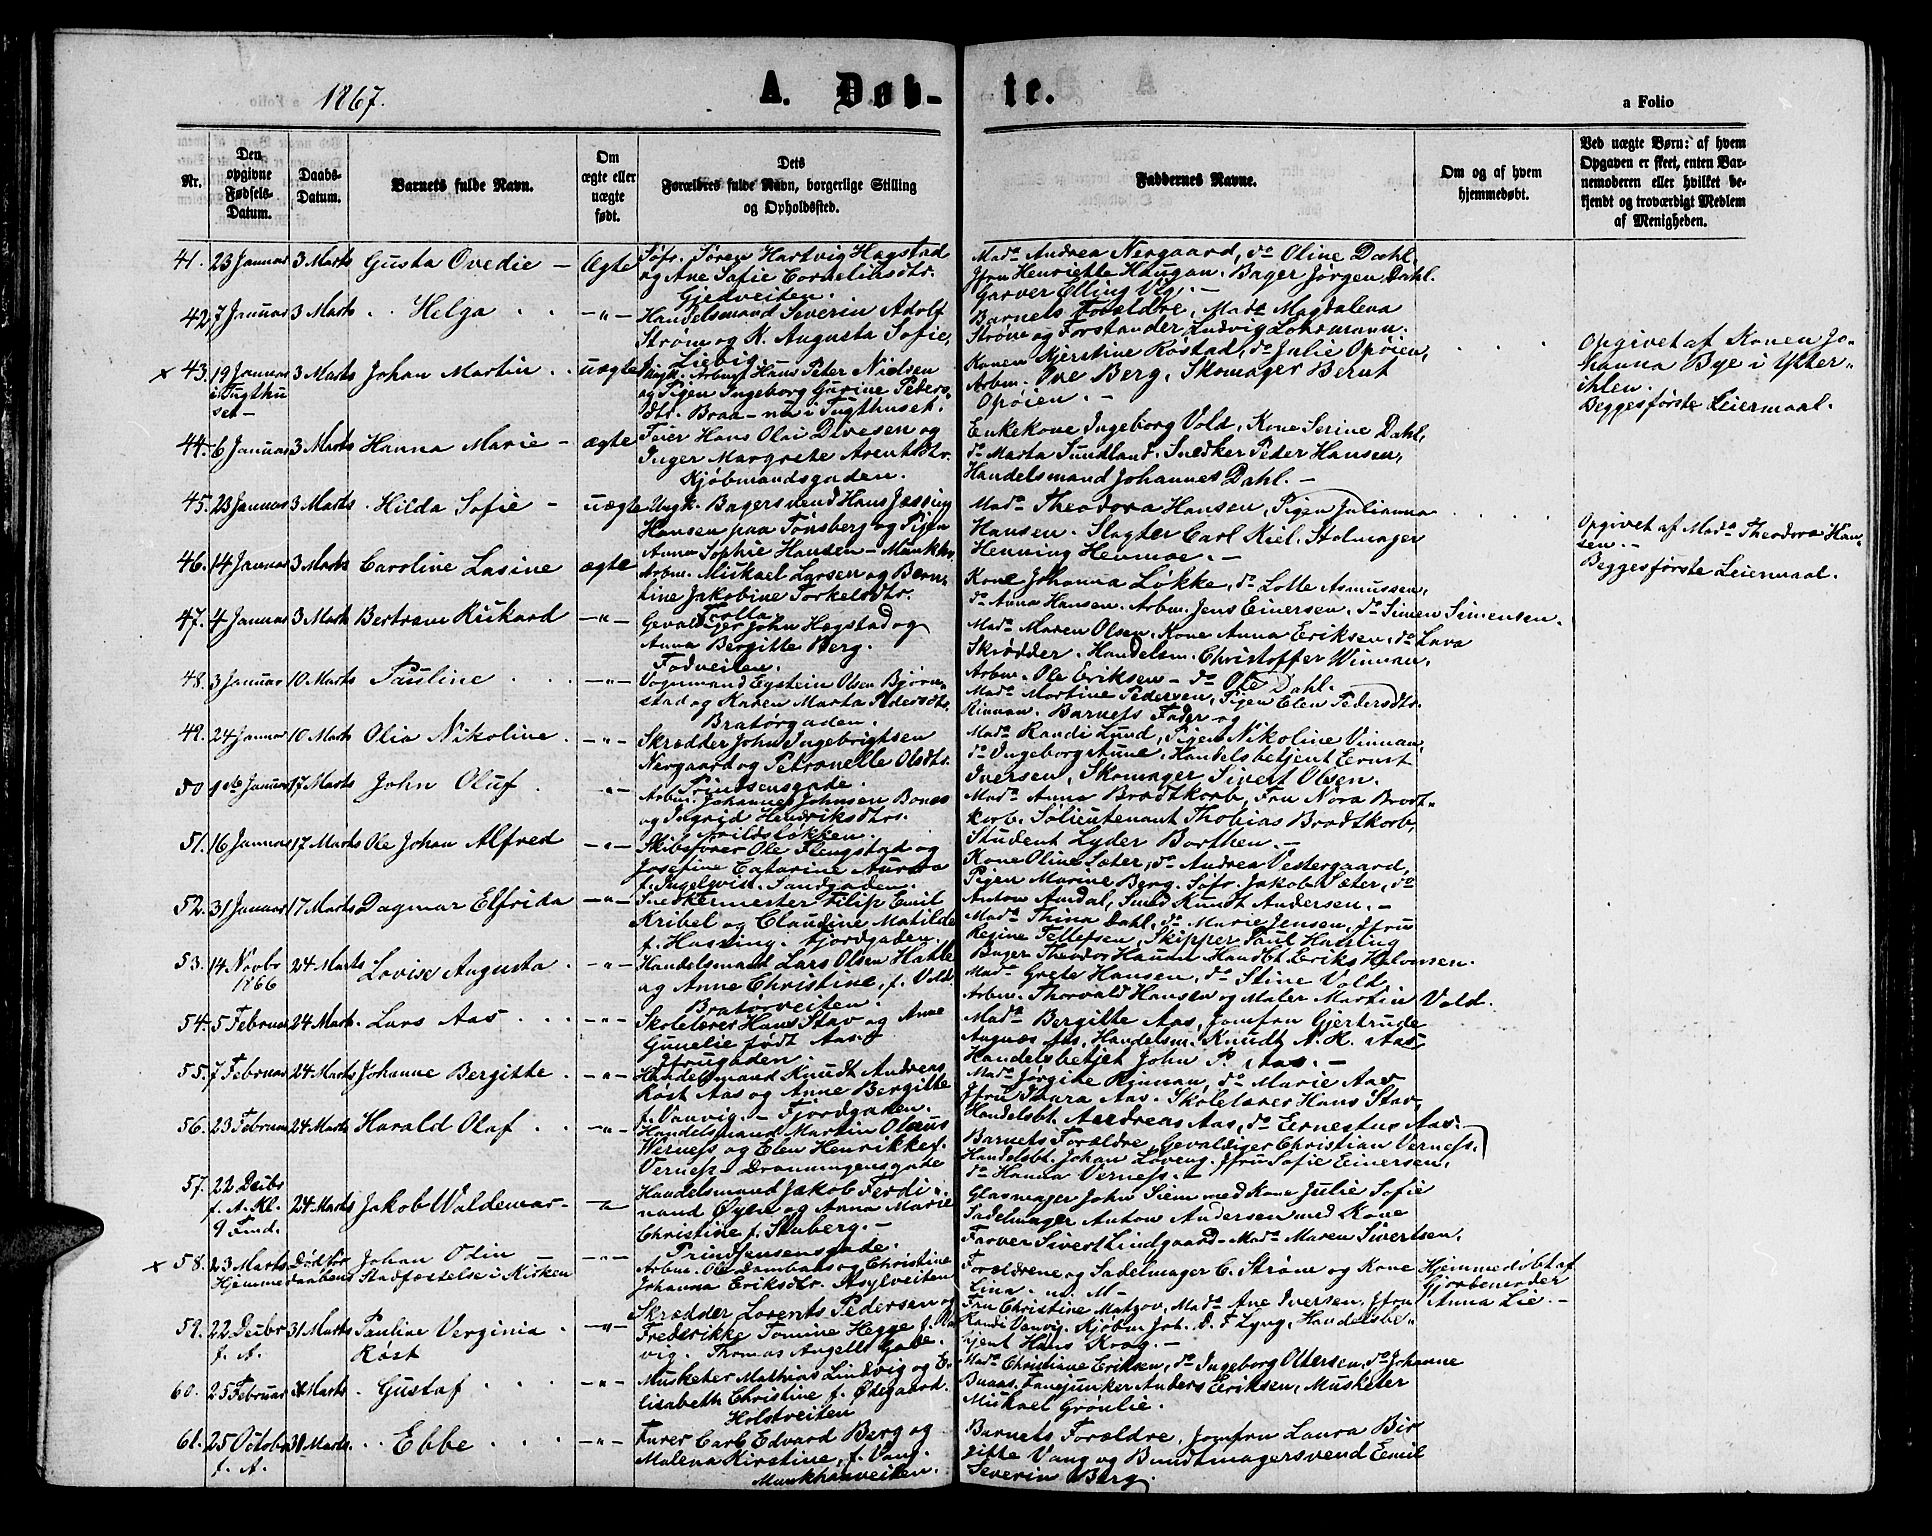 1867.
A. Døb-
te.
a Folio
Nr.
Den opgivne Fødsels-Datum.
Daabs-Datum.
Barnets fulde Navn.
Om ægte eller uægte født.
Dets Forældres fulde Navn, borgerlige Stilling og Opholdssted.
Faddernes Navne.
Om og af hvem hjemmedøbt.
Ved uægte Børn: af hvem Opgaven er skeet, enten Barnemoderen eller hvilket bekjendt og troværdigt Medlem af Menigheden.
41. 23 Januar 3 Marts Gusta Ovedie - Ægte
Søfr. Søren Hartvig Hegstad
og Ane Sofie Corneliusdtr.
Gjedveiten.
Mada Andrea Nergaard, do Oline Dahl,
Jfru Henriette Haugan. Bager Jørgen Dahl.
Garver Elling Vig. -
42. 7 Januar 3 Marts Helga -"-
Handelsmand Severin Adolf
Strøm og K. Augusta Sofie,
Liebig.
Barnets Forældre, Mada Magdalena
Strøm og Forstander Ludvig Lohrmann.
x 43. 19 Januar i Tugthuset - 3 Marts Johan Martin uægte
Ungk. Arbm. Hans Peter Nielsen
og Pigen Ingeborg Gurine Peders-
dtr. Braa - nu i Tugthuset.
Konen Kjerstine Røstad, do Julie Opøien,
Arbm. Ove Berg, Skomager Bernt
Opøien. -
Opgivet af Konen Jo-
hanna Bye i Ytter-
ihlen.
Begges første Leiermaal.
44. 6 Januar 3 Marts Hanna Marie - ægte
Feier Hans Olai Divesen og
Inger Margrete Arentsdtr.
Kjøbmandsgaden.
Enkekone Ingeborg Vold, Kone Serine Dahl,
do Marta Sundland. Snedker Peder Hansen,
Handelsmand Johannes Dahl. -
45. 23 Januar 3 Marts Hilda Sofie - uægte
Ungk. Bagersvend Hans Jessing
Hansen paa Tønsberg og Pigen
Anna Sophie Hansen - Munkh.
Mada Theodora Hansen, Pigen Julianna
Hansen. Slagter Carl Kiel. Stolmager
Henning Henmoe. -
Opgivet af Mada Theodora Han-
sen. -
Begges første Leiermaal.
46. 14 Januar 3 Marts Caroline Lasine ægte
Arbm. Mickael Larsen og Bern-
tine Jakobine Torkelsdtr.
Trolla
Kone Johanna Løkke, do Lotte Asmussen,
do Anna Hansen. Arbm. Jens Einersen, do Simen Simensen.
47. 4 Januar 3 Marts Bertram Rickard -"-
Gevaldiger John Hegstad og
Anna Bergitte Berg.
Fodveiten.
Mada Maren Olsen. Kone Anna Eriksen, do Lava
Skrødder. Handelsm. Christoffer Winnan,
Arbm. Ole Eriksen - do Ole Dahl.
48. 3 Januar 10 Marts Pauline -"-
Vognmand Eystein Olsen Bjørn-
stad og Karen Marta Pedersdtr.
Bratørgaden.
Mada Martine Pedersen, Pigen Elen Pedersdtr.
Rinnan. Barnets Fader og
49. 24 Januar 10 Marts Olia Nikoline -"-
Skrædder John Ingebrigtsen
Nergaard og Petronelle Olsdtr.
Prindsensgade.
Mada Randi Lund, Pigen Nikoline Vinnan,
do Ingeborg Aune, Handelsbetjent Ernst
Iversen, Skomager Sivert Olsen.
50. 1ste Januar 17 Marts John Oluf -"-
Arbm. Johannes Johnsen Bones
og Ingrid Hendriksdtr.
Arildsløkken.
Mada Anna Brodtkorb, Fru Nora Brodt-
korb. Sølieutenant Thobias Brodtkorb,
Student Lyder Borthen. -
51. 16 Januar 17 Marts Ole Johan Alfred -"-
Skibsfører Ole Flengstad og
Josefine Catarine Aurora
f. Ingelqvist. Sandgaden.
Kone Oline Sæter, do Andrea Vestergaard,
Pigen Marine Berg. Søfr. Jakob Sæter, do
Anton Amdal, Smed Knudt Andersen. -
52. 31 Januar 17 Marts Dagmar Elfrida -"-
Snedkermester Filip Emil
Kribel og Claudine Matilde
f. Hassing. Fjordgaden.
Mada Thina Dahl, do Marie Jensen, Jfru
Regine Tellefsen, Skipper Paul Hassing
Bager Theodor Haugan Handbt. Eriks Halvorsen.
53. 14 Novbr 1866 24 Marts Lovise Augusta -"-
Handelsmand Lars Olsen Hatle
og Anne Christine, f. Vold.
Bratørveiten.
Mada Grete Hansen, do Stine Vold
Arbm. Thorvald Hansen og Maler Martin Vold.
54. 5 Februar 24 Marts Lars Aas -"-
Skolelærer Hans Stav og Anne
Gunelie født Aas.
Jfrugaden.
Mada Bergitte Aas, Jomfru Gjertrude
Augnæs Aas, Handelsm. Knudt N. K. Aas
Handelsbetjet John P. Aas. -
55. 7 Februar 24 Marts Johanne Bergitte -"-
Handelsmand Knudt Andreas
Røst Aas og Anne Bergitte
f. Vanvig. - Fjordgaden.
Mada Jørgine Rinnan, do Marie Aas
Jfru Thara Aas. Skolelærer Hans Stav,
Handelsbt. Andreas Aas, do Ernestus Aas.
56. 23 Februar 24 Marts Harald Olaf -"-
Handelsmand Martin Olaus
Werness og Elen Henrikke f.
Verness - Dronningensgade
Barnets Forældre, Gevaldiger Christian Verness.
Handelsbt. Johan Løveng. Jfru Sofie Einersen,
do Hanna Verness. -
57. 22 Decbr f. A. Kl. 9 Fmd. 24 Marts Jakob Waldemar -"-
Handelsmand Jakob Ferdi-
nand Øyen og Anna Marie
Christine f. Skaberg. -
Prindsensgade.
Glasmager John Siem med Kone Julie Sofie
Sadelmager Anton Andersen med Kone
Farver Sivert Lindgaard - Mada Maren Sivertsen,
x 58. 23 Marts Hjemme Død før Daaben Johan Odin
Stadfæstelse i Kirken -"-
Arbm. Ole Dambaas og Christine
Johanna Eriksdtr. Asylveiten
Forældrene og Sadelmager C. Strøm og Kone
Lina
Hjemmedøbt af
Gjorbemoder
Anna Lie. -
59. 22 Decbr f. A. 31 Marts Pauline Verginia
Røst -"-
Skrædder Lorents Pedersen og
Fredrikke Tomine Hegge f. Van-
vig. Thomas Angells Gade.
Fru Christine Matzov, Mada Ane Iversen. Jfru
Randi Vanvig. Kjøbm. Joh. D. F. Lyng, Handelsbe-
tjent Hans Krog. -
60. 25 Februar 31 Marts Gustaf -"-
Musketer Mathias Lindvig og E-
lisabeth Christine f. Ødegaard.
Holstveiten
Mada Christiane Eriksen, do Ingeborg Ottersen, do Johanne
Buaas. Fanejunker Anders Eriksen, Musketer
Mickael Grønlie.
61. 25 Octobr f. A. 31 Marts Ebbe -"-
Furer Carl Edvard Berg og
Malena Kirstine, f. Vang
Munkhaugveiten.
Barnets Forældre, Jomfru Laura Bir-
gitte Vang og Bundtmagersvend Emil
Severin Berg.